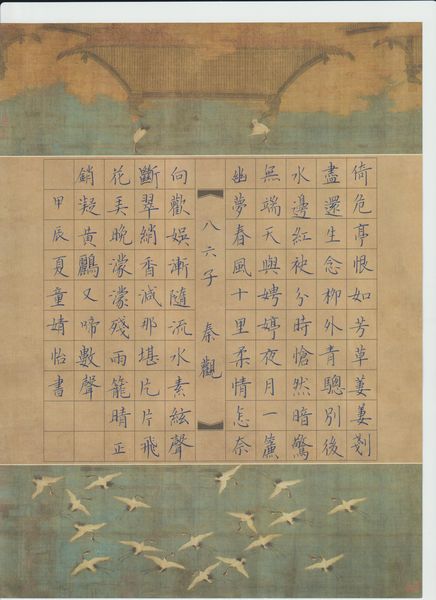 倚危亭恨如芳草萋萋剗
盡還生念柳外青驄別後
水邊紅袂分時愴然暗驚
無端天與娉婷夜月一簾
幽夢春風十里柔情怎奈
八六子 秦觀
向歡娛漸隨流水素絃聲
斷翠綃香減那堪片片飛
花弄晚濛濛殘雨籠晴正
銷凝黃鸝又啼數聲
甲辰夏童婧怡書